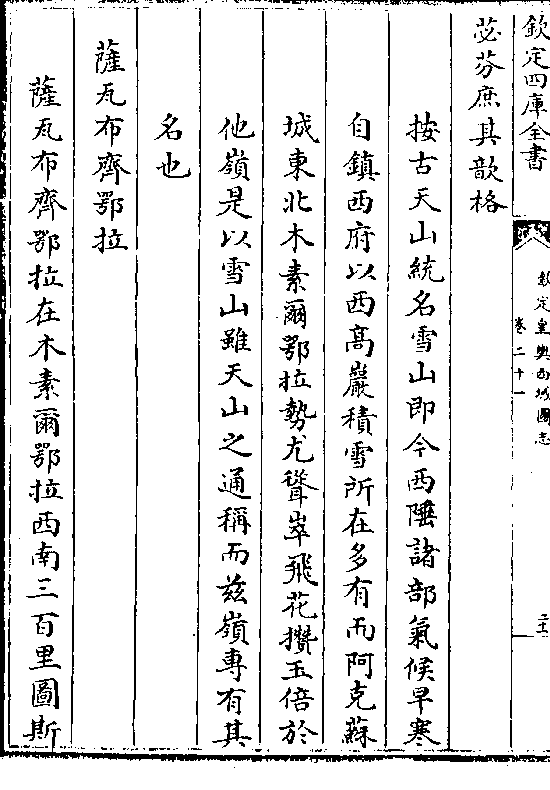 欽定四庫全書
欽定皇輿西域圖志
卷二十一
苾芬庶其歆格
按古天山統名雪山即今西陲諸部氣候早寒
自鎮西府以西高巖積雪所在多有而阿克蘇
城東北木素爾鄂拉勢尤聳崒飛花攢玉倍於
他嶺是以雪山雖天山之通稱而兹嶺專有其
名也
薩瓦布齊鄂拉
薩瓦布齊鄂拉在木素爾鄂拉西南三百里圖斯